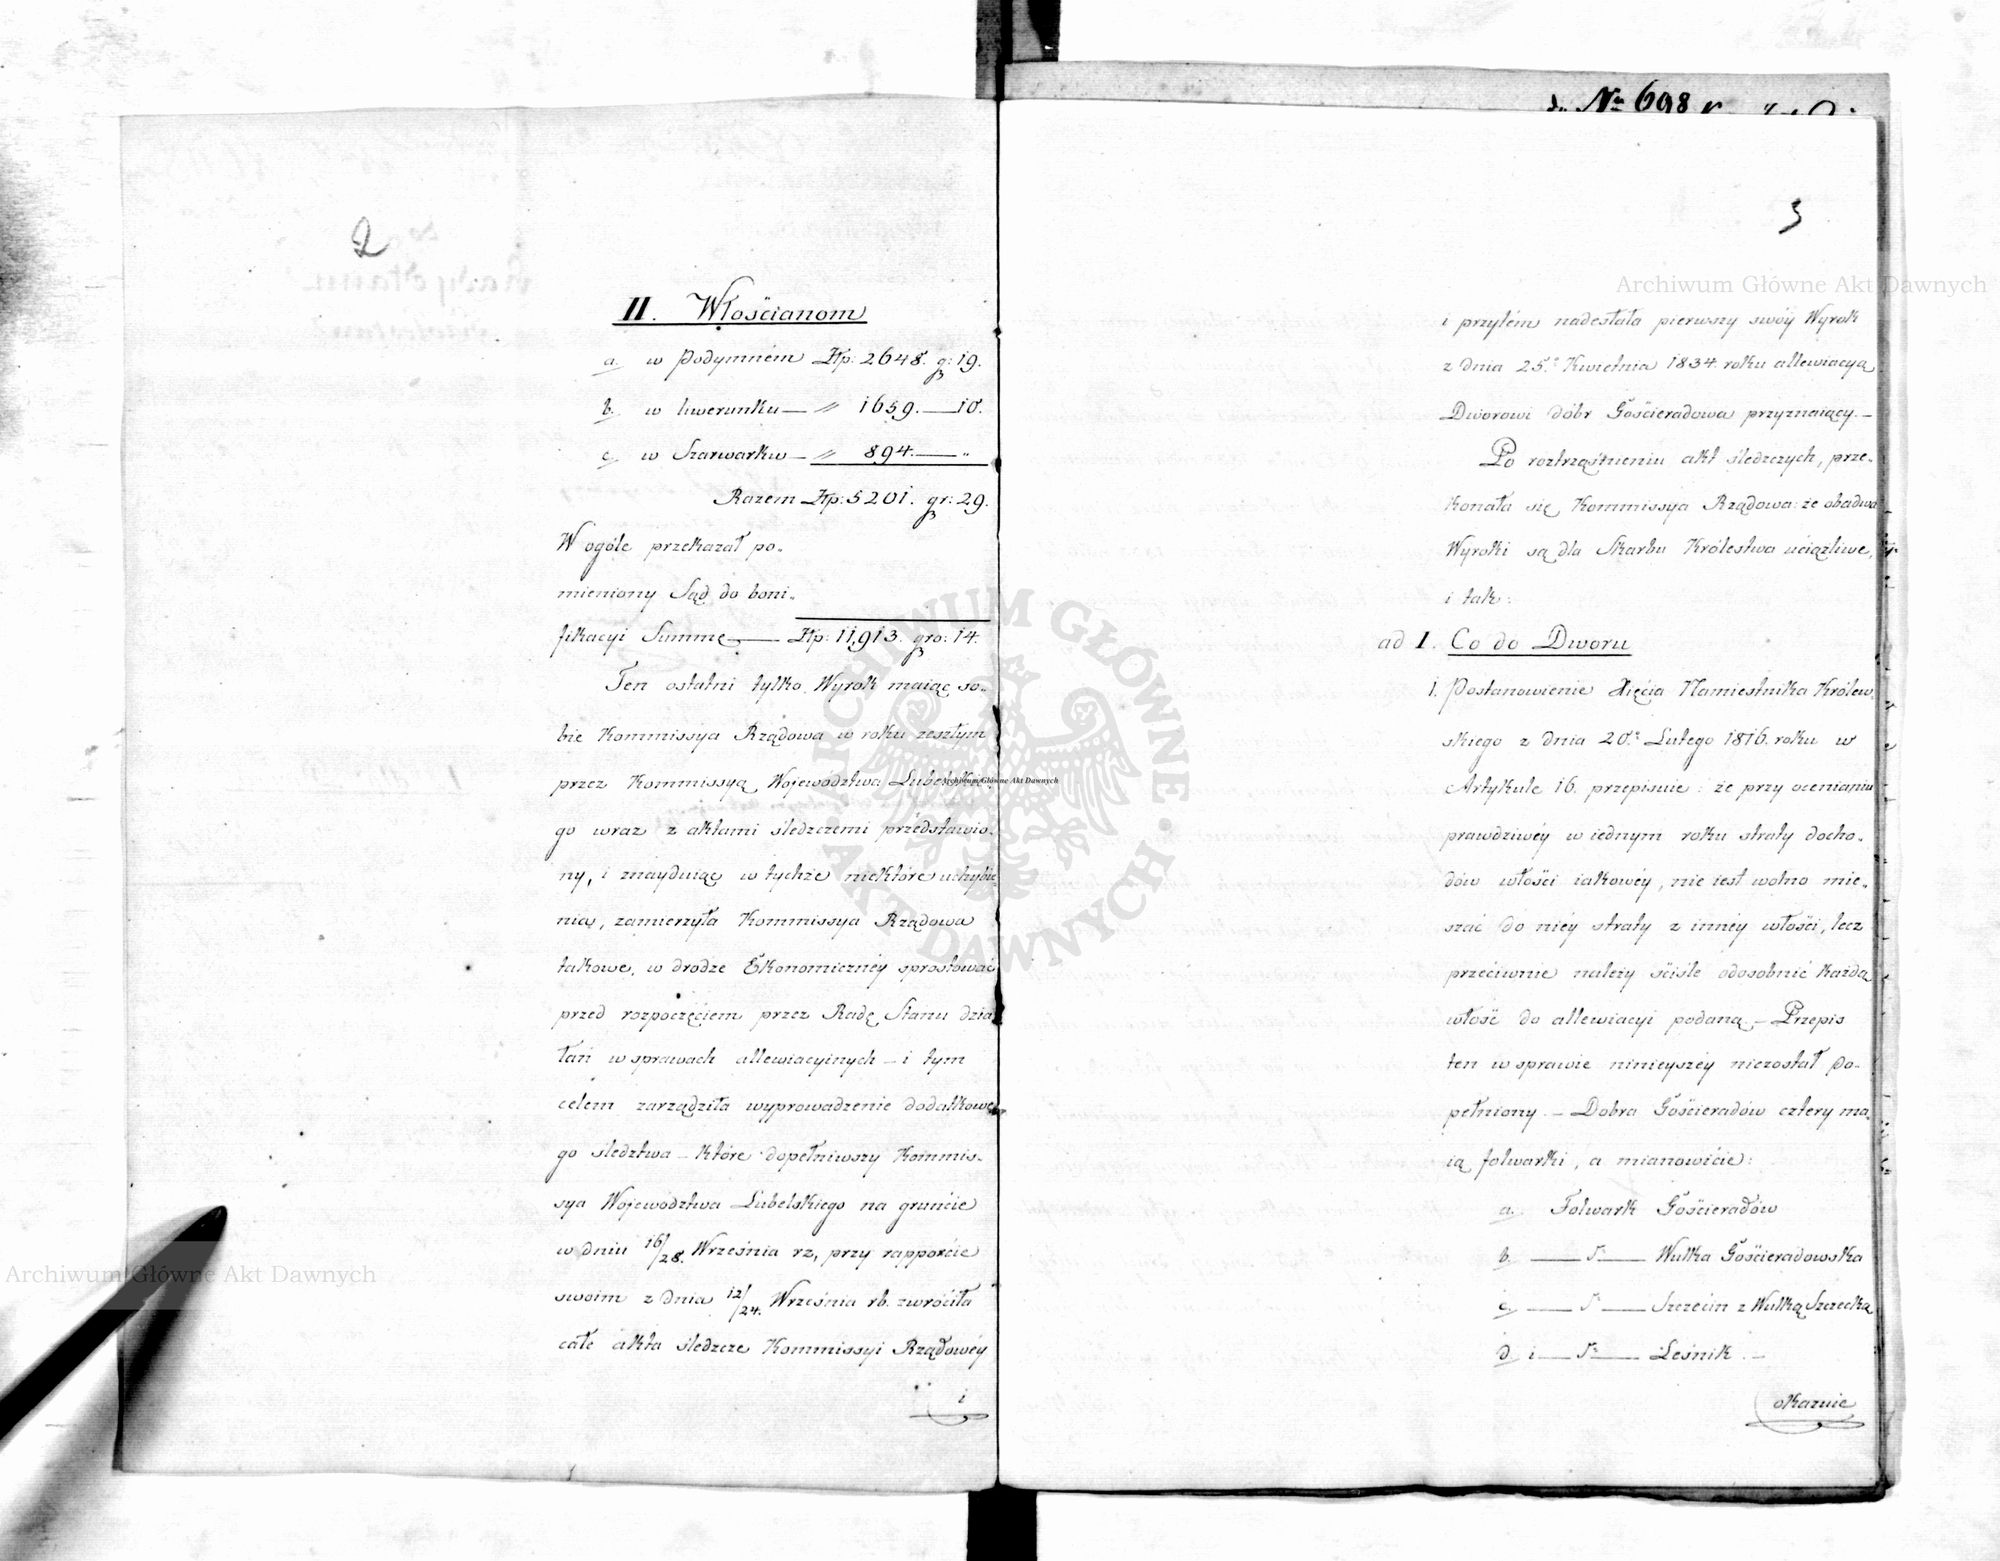 2
II. Włościanom
a. w Podymném Złp: 2648. gr: 19.
b. w liwerunku — „ 1659. — 10.
c. w Szarwarku — „ 894. — „
Razem Złp: 5201. gr: 29.
W ogóle przekazał po„
mieniony Sąd do boni„
fikacyi Summę — Złp: 11,913. gro: 14.
Ten ostatni tylko Wyrok maiąc so„
bie Kommissya Rządowa w roku zeszłym
przez Kommissyą Województwa Lubelskie„
go wraz z aktami śledczemi przedstawio„
ny, i znayduiąc w tychże niektóre uchybie„
nia, zamierzyła Kommissya Rządowa
takowe, w drodze Ekonomicznéy sprostować
przed rozpoczęciem przez Radę Stanu dzia„
łań w sprawach allewiacyinych – i tym
celem zarządziła wyprowadzenie dodatkowe„
go śledztwa – które dopełniwszy Kommis„
sya Województwa Lubelskiego na gruncie
w dniu 16/28. Września rz, przy rapporcie
swoim z dnia 12/24. Września rb. zwróciła
całe akta śledcze Kommissyi Rządowéy
i
do Nr 698
3
i przytém nadesłała pierwszy swóy Wyrok
z dnia 25.º Kwietnia 1834. roku allewiacyą
Dworowi dóbr Gościeradowa przyznaiący. –
Po roztrząśnieniu akt śledczych, prze„
konała się Kommissya Rządowa: że obadwa
Wyroki są dla Skarbu Królestwa uciążliwe,
i tak:
ad I. Co do Dworu
1. Postanowienie Xięcia Namiestnika Królew„
skiego z dnia 20.º Lutego 1816. roku w
Artykule 16. przepisuie: że przy ocenianiu
prawdziwéy w iednym roku straty docho„
dów włości iakowéy, nie iest wolno mie„
szać do niéy straty z innéy włości, lecz
przeciwnie należy ściśle odosobnić każdą
włość do allewiacyi podaną, – Przepis
ten w sprawie ninieyszéy niezostał do„
pełniony. – Dobra Gościeradów cztery ma„
ią folwarki, a mianowicie:
a. Folwark Gościeradów
b. — dº — Wulka Gościeradowska
c. — dº — Szczecin z Wulką Szczecką
d. i — dº — Leśnik. –
okazuie
Archiwum Główne Akt Dawnych
Archiwum Główne Akt Dawnych
Archiwum Główne Akt Dawnych
ARCHIWUM GŁÓWNE • AKT DAWNYCH •